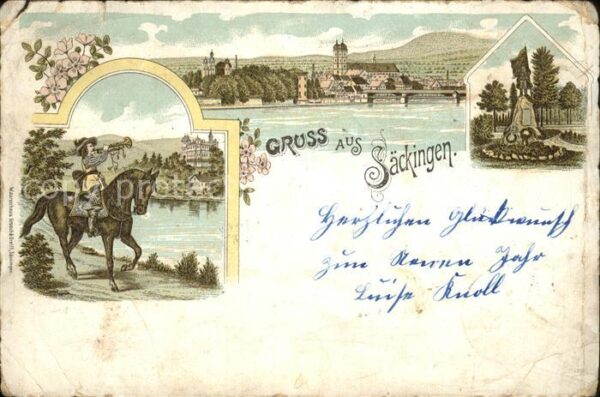 GRUSS AUS Säckingen.
Herzlichen Glückwunsch
zum Neuen Jahr
Luise Knoll